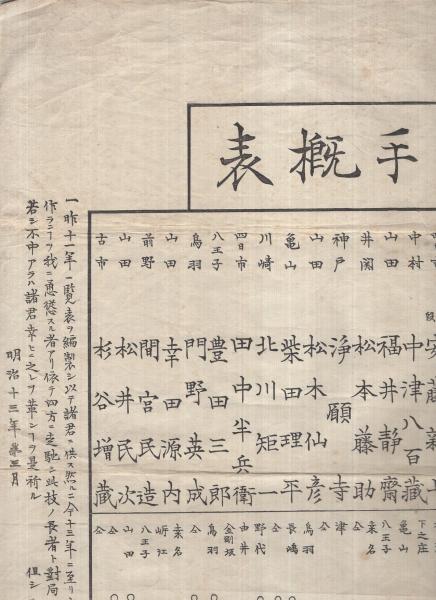 手概表
中村 中津八百藏
山田 福井静齋
井関 松本藤助
神戸 浄願寺
山田 松木仙彦
亀山 柴田理平
川崎 北川矩一
四日市 田中半兵衛
八王子 豊田三郎
鳥羽 門野英成
山田 幸田源内
前野 間宮民造
山田 松井民次
古市 杉谷増藏
下之庄
亀山
八王子
桑名
仝
津
仝
鳥羽
長嶋
仝
野代
由井
金剛坂
鳥羽
仝
桑名
八王子
山田
仝
仝
一昨十一年一覧表ヲ編製シ以テ諸君ニ供ス然ルニ今十三年ニ至リ
作ランヿヲ我ニ慫慂スル者アリ依テ四方ニ馳シ此技ノ長者ト對局
若シ不中アラハ諸君幸ヒニ之レヲ ヿヲ是祈ル 但シ
明治十三年第三月